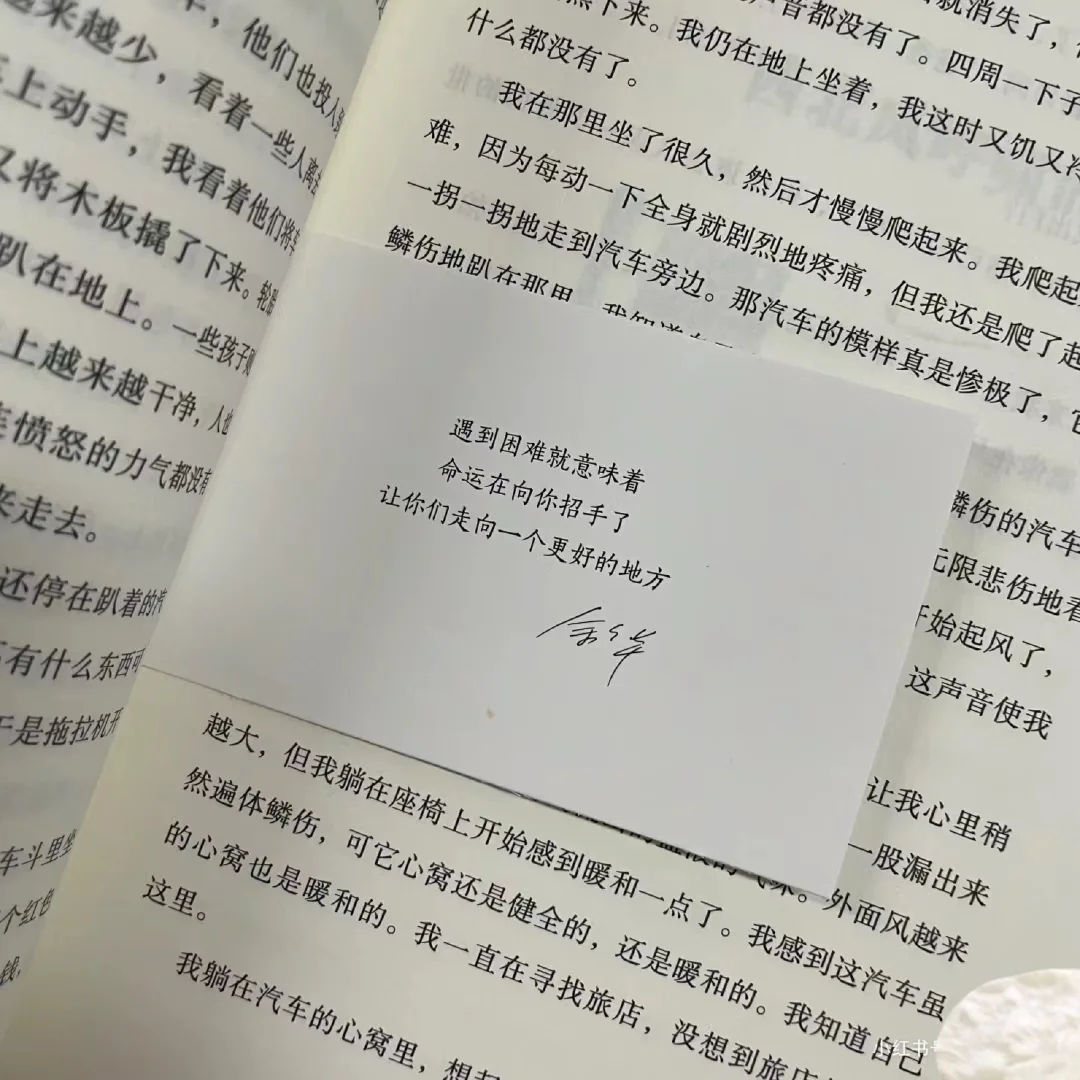 ，他们也投入
越来越少，看着一些人离
上动手，我看着他们将
又将木板撬了下来。轮胎
趴在地上。一些孩子
上越来越干净，人也
愤怒的力气都没有
来走去。
还停在趴着的汽
有什么东西可
于是拖拉机开
车斗里坐
个红色
钱，
就消失了，
声音都没有了。四周一下子
下来。我仍在地上坐着，我这时又饥又冷
什么都没有了。
我在那里坐了很久，然后才慢慢爬起来。我爬起
难，因为每动一下全身就剧烈地疼痛，但我还是爬了起
一拐一拐地走到汽车旁边。那汽车的模样真是惨极了，它
鳞伤地趴在那里，我知道
遇到困难就意味着
命运在向你招手了
让你们走向一个更好的地方
余华
鳞伤的汽车
无限悲伤地看
开始起风了，
这声音使我
让我心里稍
一股漏出来
外面风越来
越大，但我躺在座椅上开始感到暖和一点了。我感到这汽车虽
然遍体鳞伤，可它心窝还是健全的，还是暖和的。我知道自己
的心窝也是暖和的。我一直在寻找旅店，没想到旅店
这里。
我躺在汽车的心窝里，想起
小红书